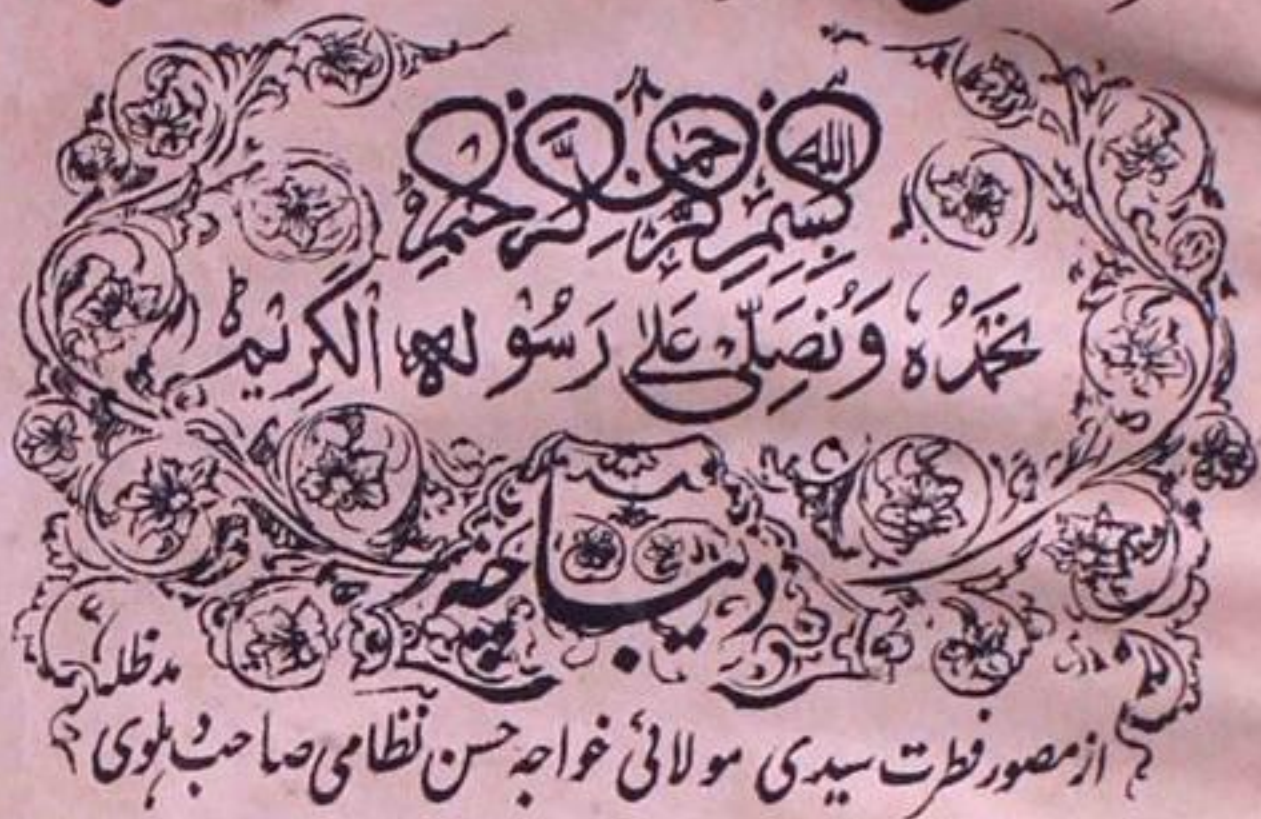 بِسْمِ اللهِ الرَّحْمٰنِ الرَّحِيْمِ
نَحْمَدُهٗ وَنُصَلِّیْ عَلٰی رَسُوْلِهِ الْکَرِیْمِ
دیباچہ
از مصور فطرت سیدی مولائی خواجہ حسن نظامی صاحب دہلوی مدظلہ